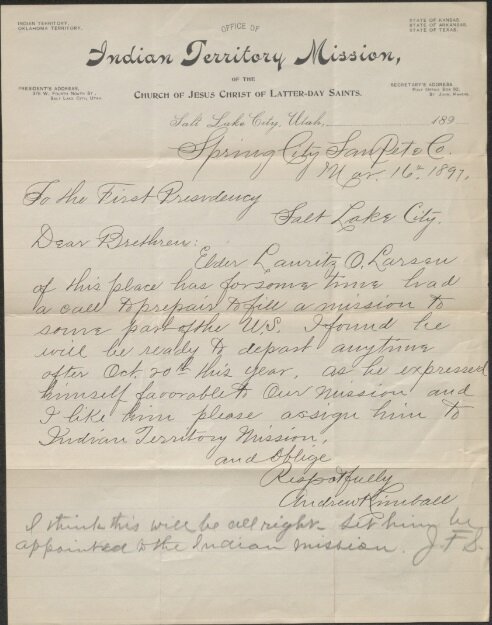 INDIAN TERRITORY.
OKLAHOMA TERRITORY.
OFFICE OF
STATE OF KANSAS.
STATE OF ARKANSAS.
STATE OF TEXAS.
Indian Territory Mission,
OF THE
CHURCH OF JESUS CHRIST OF LATTER-DAY SAINTS.
PRESIDENT'S ADDRESS,
376 W. FOURTH NORTH ST.,
SALT LAKE CITY, UTAH.
SECRETARY'S ADDRESS
POST OFFICE BOX 92,
ST. JOHN, KANSAS.
Salt Lake City, Utah, 189
Spring City SanPete Co.
Mar. 16th 1897.
To the First Presidency
Salt Lake City.
Dear Brethren:
Elder Lauritz O. Larsen
of this place has for some time had
a call to prepair to fill a mission to
some part of the U.S. I found he
will be ready to depart anytime
after Oct. 20th this year, as he expressed
himself favorable to Our Mission and
I like him please assign him to
Indian Territory Mission,
and Oblige
Respctfully
Andrew Kimball
I think this will be all right- Let him be
appointed to the Indian Mission. J. F. S.